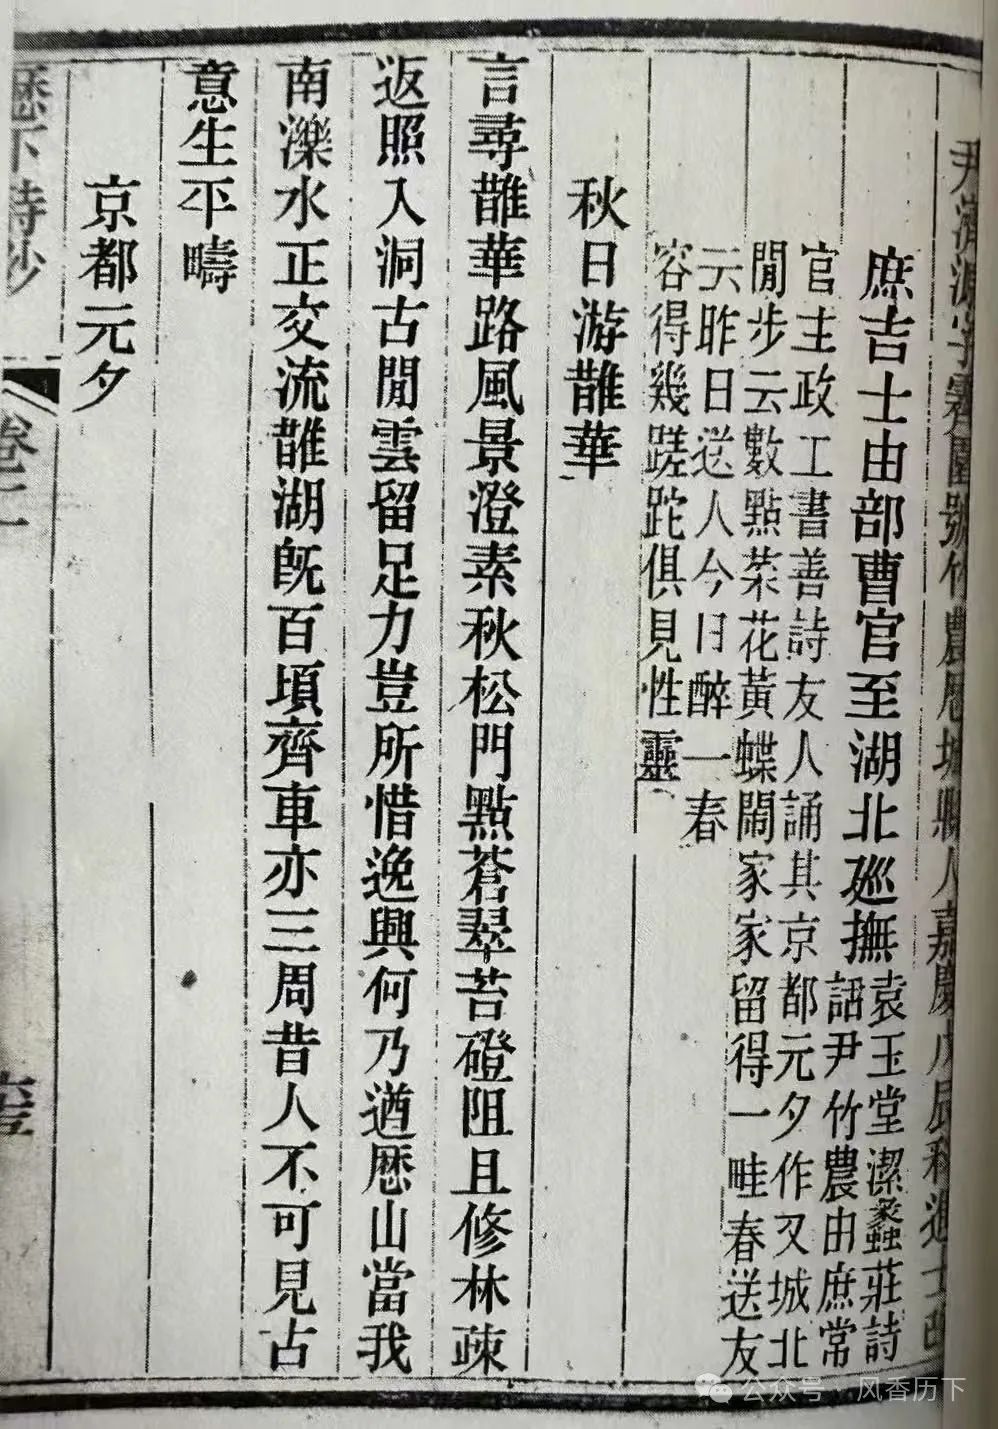 尹濟源字霽園號竹農厯城縣人嘉慶戊辰科進士改
庶吉士由部曹官至湖北廵撫袁玉堂潔蠡莊詩
話尹竹農由庶常
官主政工書善詩友人誦其京都元夕作又城北
閒步云數點菜花黃蝶鬧家家留得一畦春送友
云昨日送人今日醉一春
容得幾蹉跎俱見性靈
秋日游䧿華
言尋䧿華路風景澄素秋松門點蒼翠苔磴阻且修林疎
返照入洞古閒雲留足力豈所惜逸興何乃遒厯山當我
南濼水正交流䧿湖旣百頃齊車亦三周昔人不可見古
意生平疇
京都元夕
厯下詩鈔
卷
公众号 风香历下